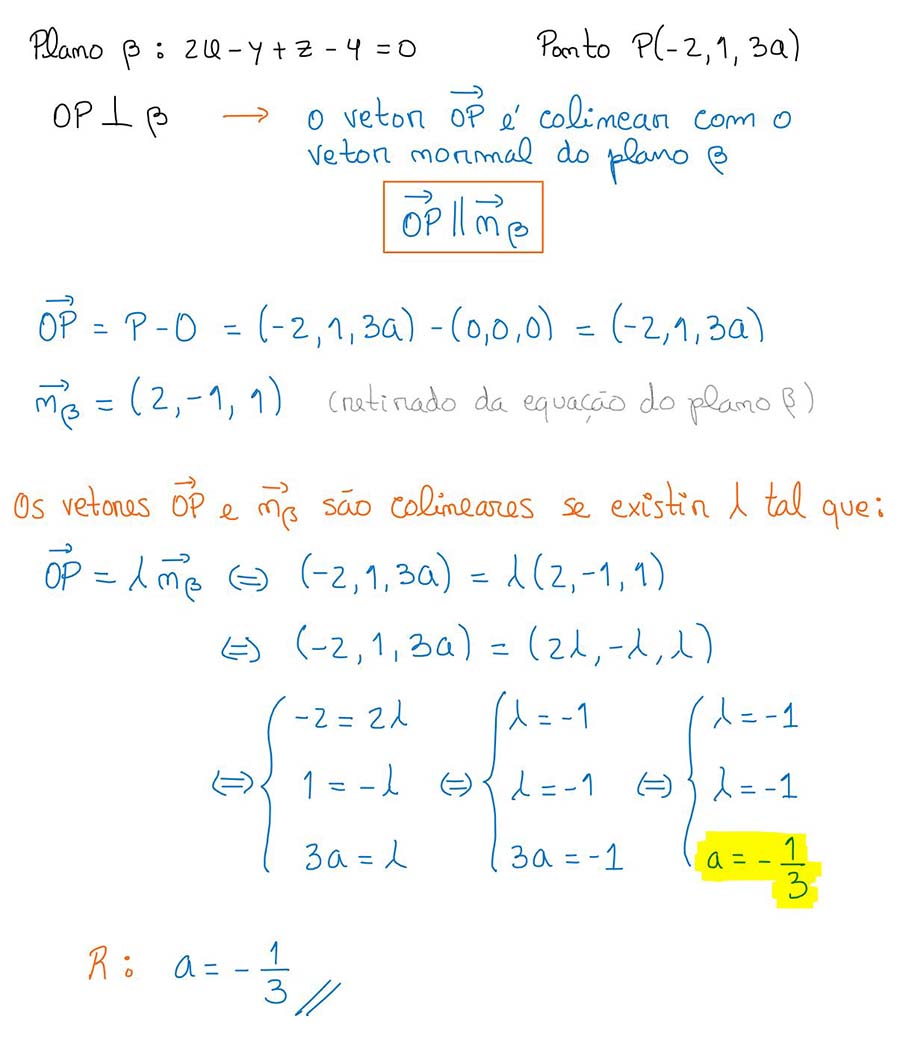 Plano β : 2x - y + z - 4 = 0 Ponto P(-2, 1, 3a)
OP ⊥ β → o vetor OP⃗ é colinear com o
vetor normal do plano β
OP⃗ ∥ n⃗β
OP⃗ = P - O = (-2, 1, 3a) - (0,0,0) = (-2, 1, 3a)
n⃗β = (2, -1, 1) (retirado da equação do plano β)
Os vetores OP⃗ e n⃗β são colineares se existir λ tal que:
OP⃗ = λ n⃗β ⇔ (-2, 1, 3a) = λ(2, -1, 1)
⇔ (-2, 1, 3a) = (2λ, -λ, λ)
⇔ { -2 = 2λ ⇔ { λ = -1 ⇔ { λ = -1
1 = -λ λ = -1 λ = -1
3a = λ 3a = -1 a = -1/3
R: a = -1/3 //